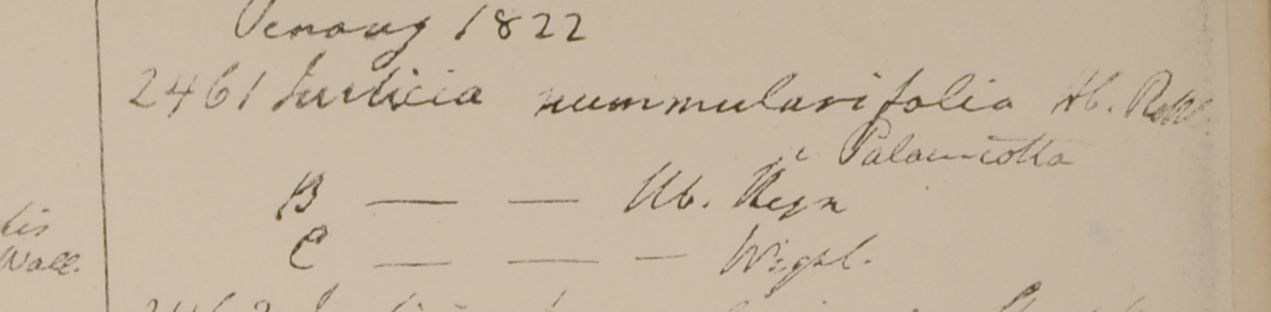 Penang 1822
2461 Justicia nummularifolia Hb. Rottl.
Palamcotta
B — — Hb. Heyn
C — — — Wight.
tis
Wall.